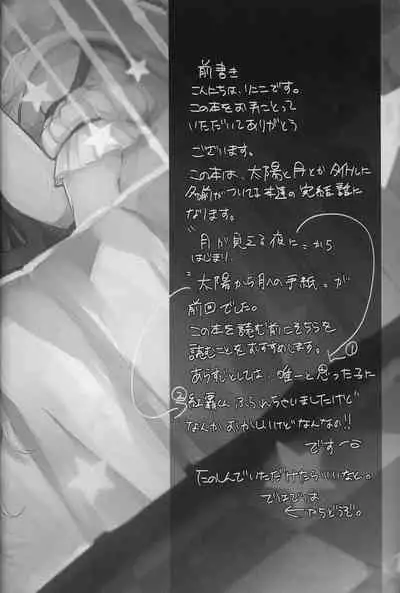 前書き
こんにちは、りここです。
この本をお手にとって
いただいてありがとう
ございます。
この本は、太陽と月とかタイトルに
名前がついてる本達の完結話に
なります。
"月が見える夜に"から
はじまり
"太陽から月への手紙"が
前回でした。
この本を読む前にそちらを
読むことをおすすめします。
①
あらすじとしては、唯一と思った子に
②
紅覇くんふられちゃいましたけど
なんかおかしいけどなんなの!!
です
たのしんでいただけたらいいなと。
ではでは
←からどうぞ。